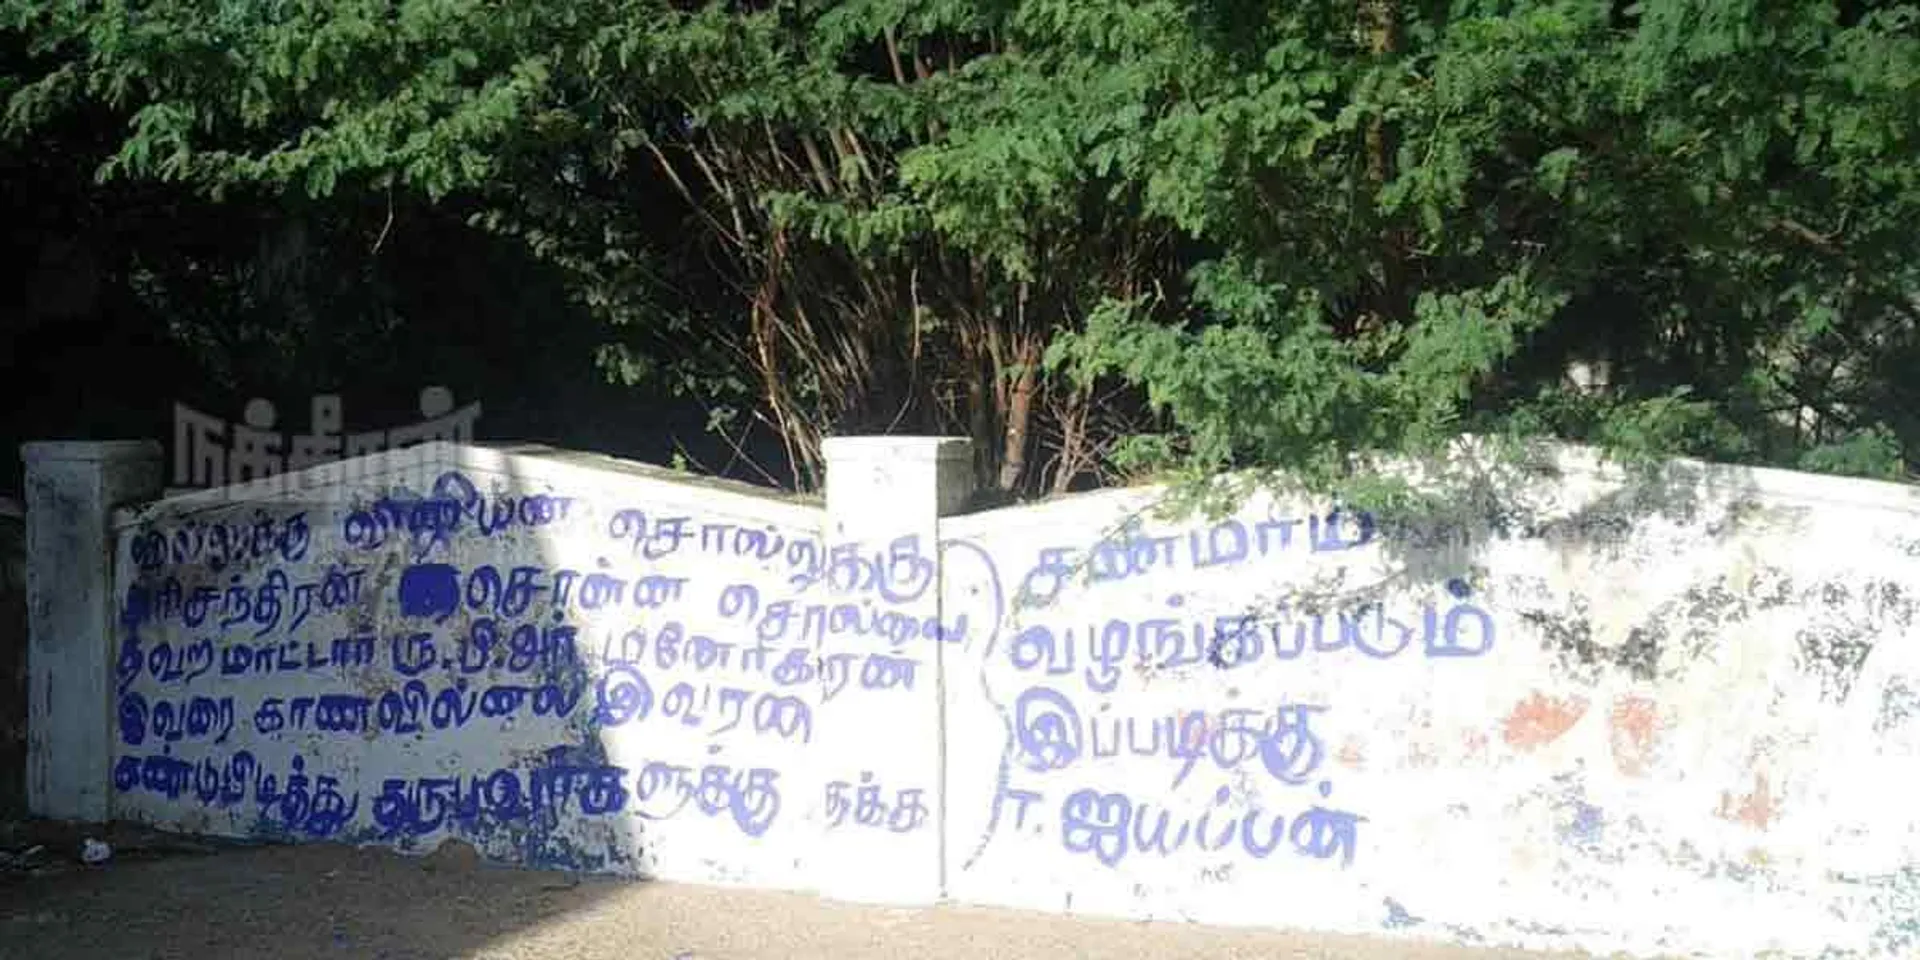 நக்கீரன்
வில்லுக்கு விஜயன் சொல்லுக்கு
அரிசந்திரன் சொன்ன சொல்லை
தவறமாட்டார் ரு.பி.அர் மனோகரன்
இவரை காணவில்லை இவரை
கண்டுபிடித்து தருபவர்களுக்கு தக்க
சன்மாம்
வழங்கப்படும்
இப்படிக்கு
T. ஜயப்பன்